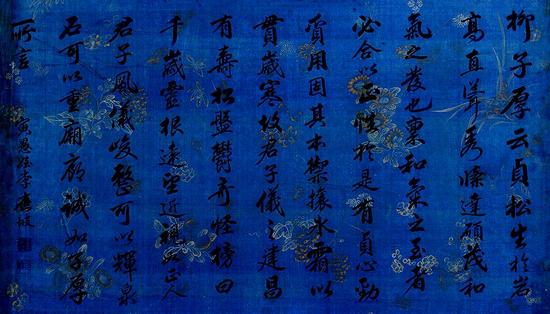 柳子厚云貞松生於岩
高直聳秀條達碩茂和
氣之發也稟和氣之至者
必合以正性於是有貞心勁
質用固其本禦攘冰霜以
貫歲寒故君子儀之建昌
有壽松盤鬱奇怪榜曰
千歲靈根遠望近正人
君子風儀峻整可以輝泉
石可以重廟廊誠如子厚
所言
寅愚姪李應